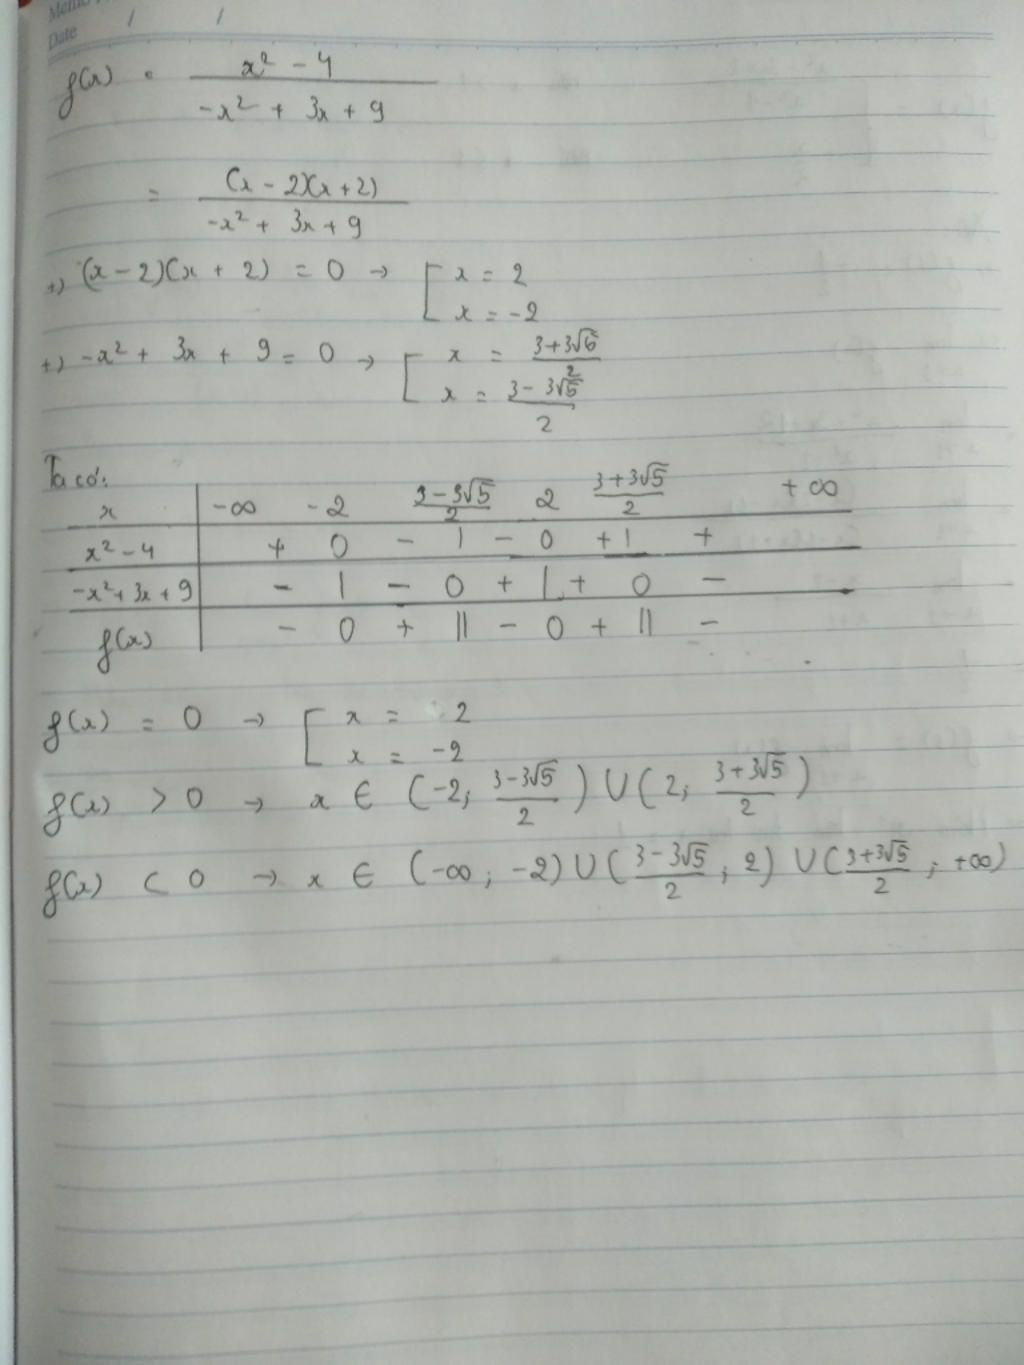 Date / /
f(x) = \frac{x² - 4}{-x² + 3x + 9}
= \frac{(x - 2)(x + 2)}{-x² + 3x + 9}
+) (x - 2)(x + 2) = 0 → [ x = 2
x = -2
+) -x² + 3x + 9 = 0 → [ x = \frac{3 + 3√6}{2}
x = \frac{3 - 3√5}{2}
Ta có:
x | -∞ -2 \frac{3 - 3√5}{2} 2 \frac{3 + 3√5}{2} +∞
x² - 4 | + 0 - | - 0 + | +
-x² + 3x + 9 | - | - 0 + | + 0 -
f(x) | - 0 + || - 0 + || -
f(x) = 0 → [ x = 2
x = -2
f(x) > 0 → x ∈ (-2; \frac{3 - 3√5}{2}) ∪ (2; \frac{3 + 3√5}{2})
f(x) < 0 → x ∈ (-∞; -2) ∪ (\frac{3 - 3√5}{2}; 2) ∪ (\frac{3 + 3√5}{2}; +∞)